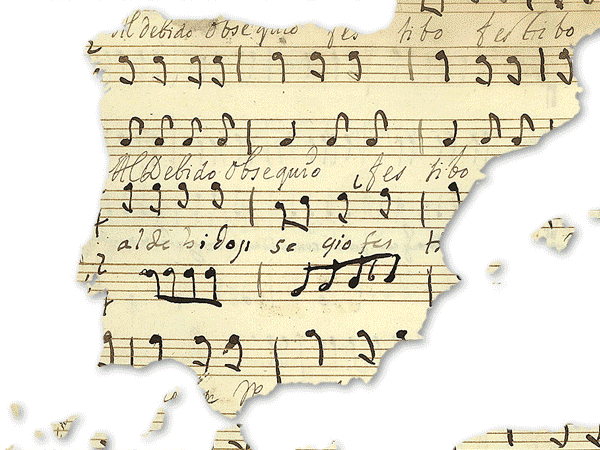 Al debido obsequio fes tibo festibo
Al Debido Obsequio fes tibo
al de bido se quio fes